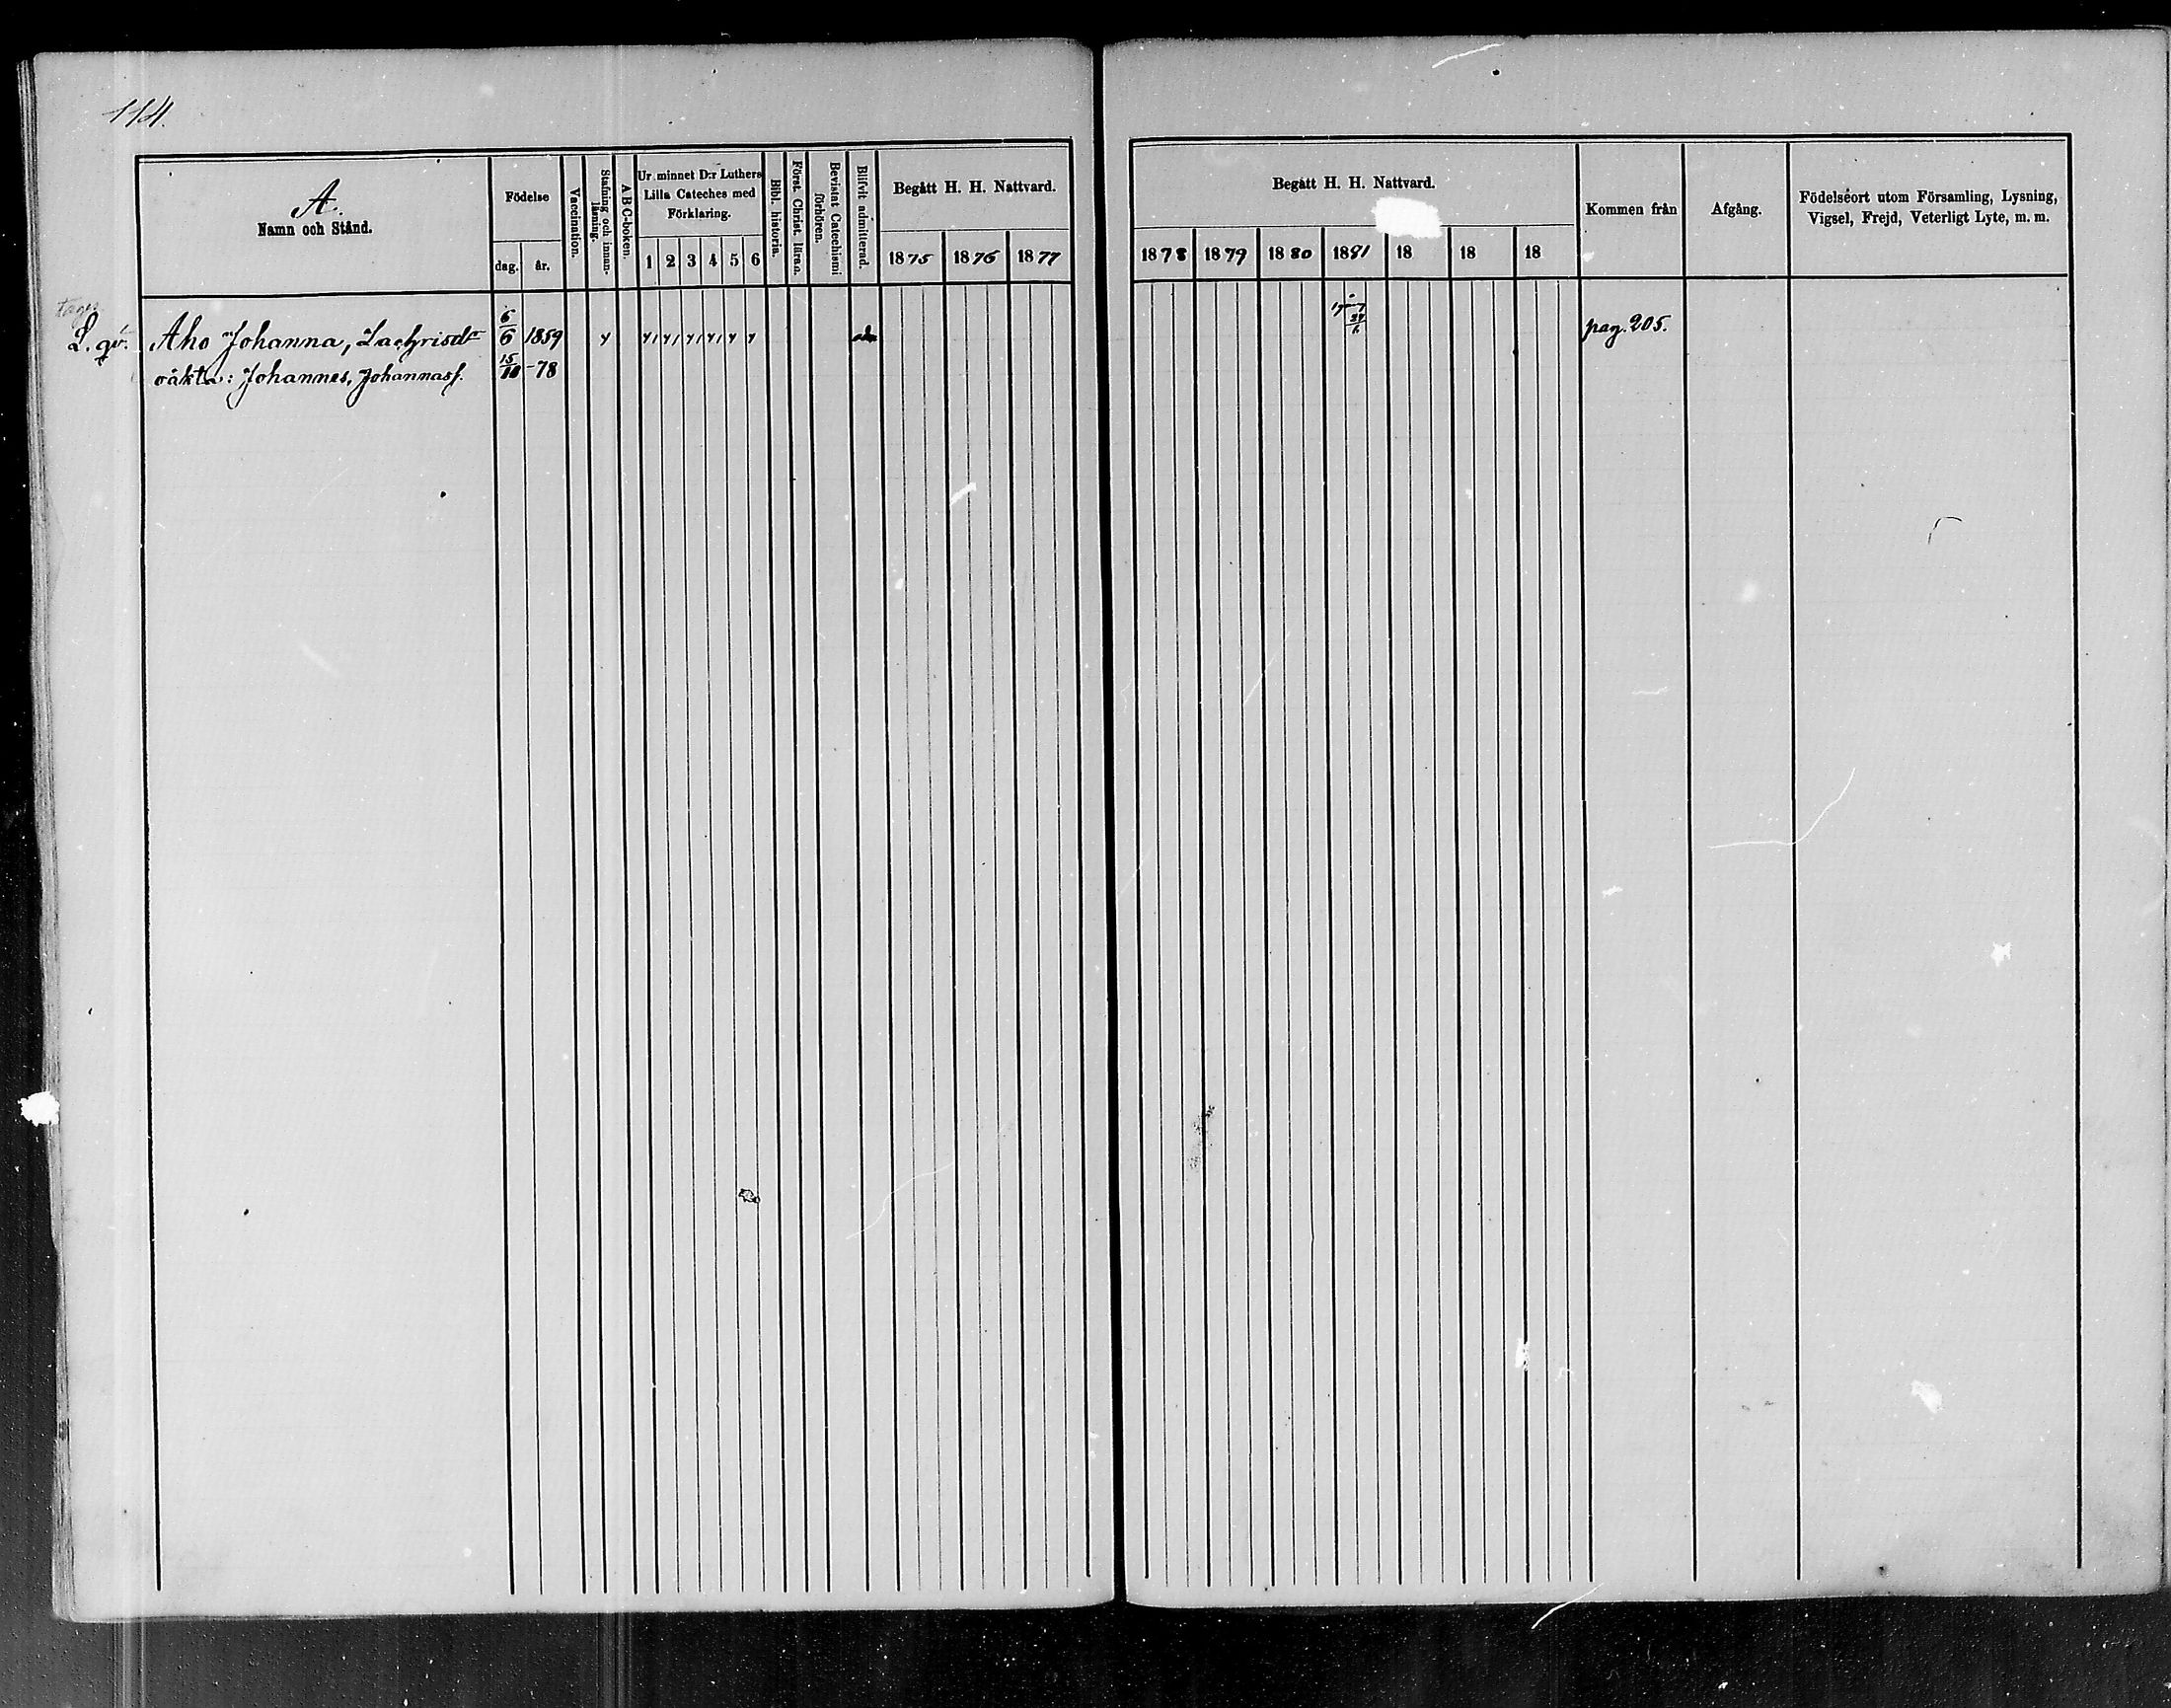 114.
A.
Namn och Stånd.
Födelse
dag. år.
Vaccination.
Stafning och innan-
läsning.
ABC-boken.
Ur minnet D:r Luthers
Lilla Cateches med
Förklaring.
1 2 3 4 5 6
Bibl. historia.
Först. Christ. läran.
Bevistat Catechismi
förhören.
Blifvit admitterad.
Begått H. H. Nattvard.
1875 1876 1877
Begått H. H. Nattvard.
1878 1879 1880 1881 18 18 18
Kommen från
Afgång.
Födelseort utom Församling, Lysning,
Vigsel, Frejd, Veterligt Lyte, m. m.
L. qv. Aho Johanna, Zachrisdr 6/6 1859 pag. 205.
oäkta: Johannes, Johannas s. 15/10 -78